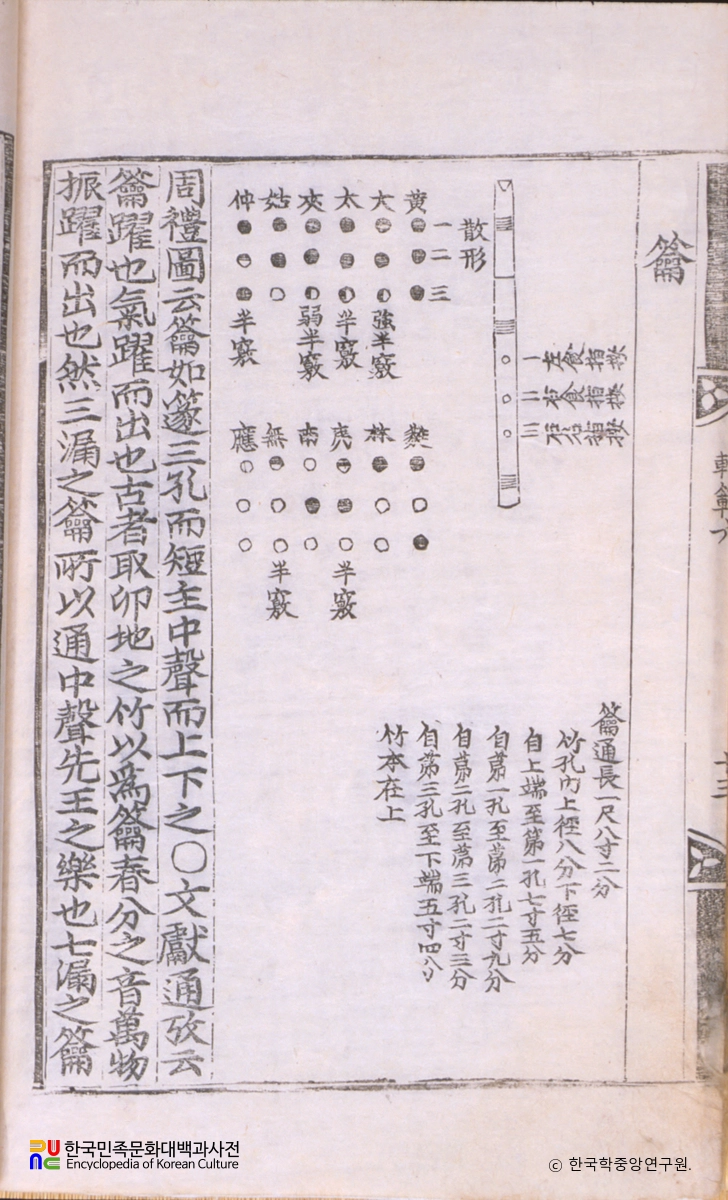 籥
一左食指按
二右食指按
三右指按
散形
一二三
黃
大 強半竅
太 半竅
夾 弱半竅
姑
仲 半竅
蕤
林
夷 半竅
南
無 半竅
應
籥通長一尺八寸二分
竹孔內上徑八分下徑七分
自上端至第一孔七寸五分
自第一孔至第二孔二寸九分
自第二孔至第三孔二寸三分
自第三孔至下端五寸四分
竹本在上
周禮圖云籥如篴三孔而短主中聲而上下之○文獻通攷云
籥躍也氣躍而出也古者取卯地之竹以爲籥春分之音萬物
振躍而出也然三漏之籥所以通中聲先王之樂也七漏之籥
한국민족문화대백과사전
Encyclopedia of Korean Culture
ⓒ 한국학중앙연구원.